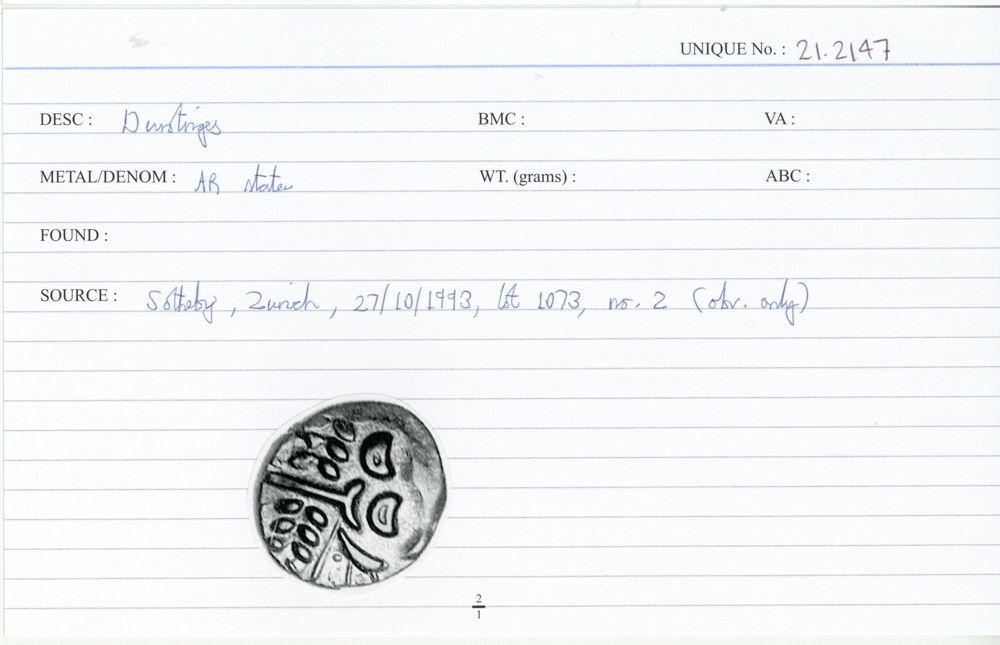 UNIQUE No. : 21.2147
DESC : Durotriges BMC : VA :
METAL/DENOM : AR stater WT. (grams) : ABC :
FOUND :
SOURCE : Sotheby, Zurich, 27/10/1993, lot 1073, no. 2 (obv. only)
2
1